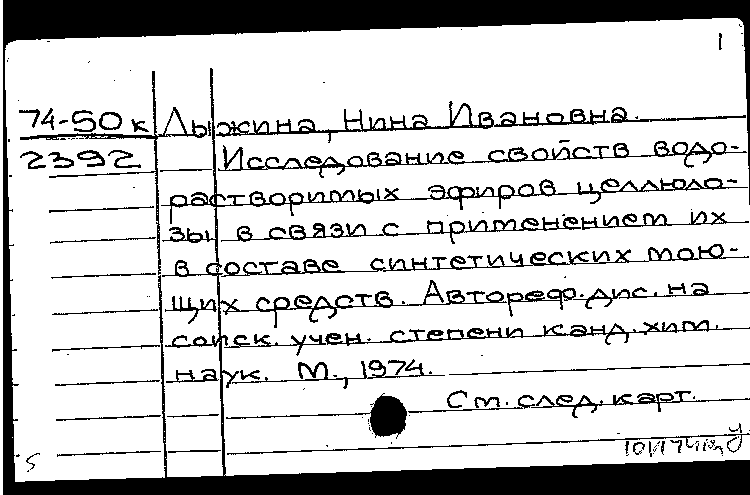 1
74-50к Лыжина, Нина Ивановна.
2392 Исследование свойств водо-
растворимых эфиров целлюло-
зы в связи с применением их
в составе синтетических мою-
щих средств. Автореф. дис. на
соиск. учен. степени канд. хим.
наук. М., 1974.
См. след. карт.
5